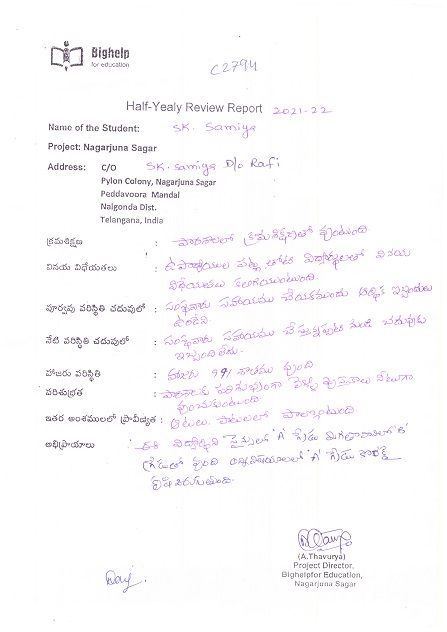 Bighelp
for education
C2794
Half-Yealy Review Report 2021-22
Name of the Student: SK. Samiya
Project: Nagarjuna Sagar
Address: C/O SK. Samiya D/o Rafi
Pylon Colony, Nagarjuna Sagar
Peddavoora Mandal
Nalgonda Dist.
Telangana, India
క్రమశిక్షణ : పాఠశాలలో క్రమశిక్షణతో వుంటుంది
వినయ విధేయతలు : ఉపాధ్యాయుల పట్ల, తోటి విద్యార్థులతో వినయ
విధేయతలు కలిగియుంటుంది.
పూర్వపు పరిస్థితి చదువులో : సంస్థవారు సహాయము చేయకముందు ఆర్థిక ఇబ్బందులు
ఉండేవి.
నేటి పరిస్థితి చదువులో : సంస్థవారు సహాయము చేస్తున్నప్పటి నుండి చదువుకు
ఇబ్బంది లేదు.
హాజరు పరిస్థితి : హాజరు 99% శాతము వుంది
పరిశుభ్రత : పాఠశాలకు పరిశుభ్రంగా వెళ్ళి పుస్తకాలు నీటుగా
వుంచుకుంటుంది.
ఇతర అంశములలో ప్రావీణ్యత : ఆటలు, పాటలలో పాల్గొంటుంది
అభిప్రాయాలు : ఈ విద్యార్థిని సైన్సులో 'A' గ్రేడు మిగిలినవాటిలో 'B'
గ్రేడులో వుంది అన్నివిషయాలలో 'A' గ్రేడు
(A.Thavurya)
Project Director,
Bighelpfor Education,
Nagarjuna Sagar